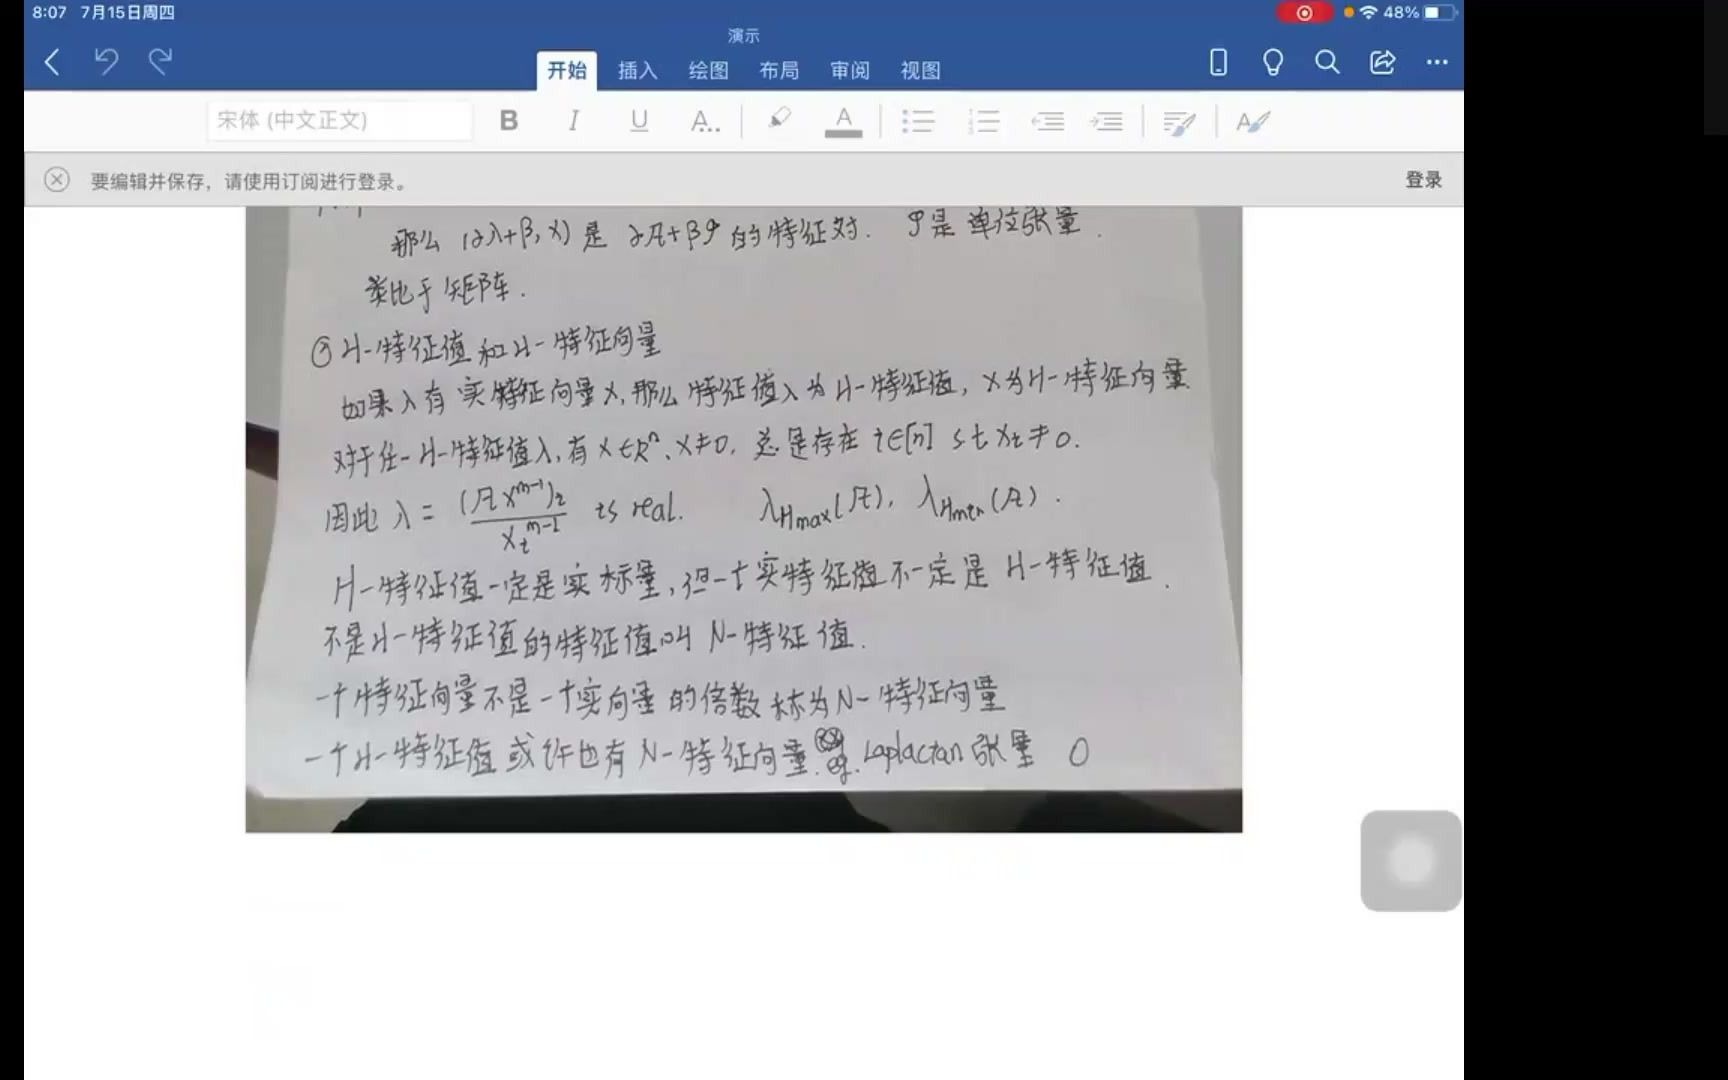 8:07 7月15日周四
48%
演示
开始 插入 绘图 布局 审阅 视图
宋体 (中文正文) B I U A... A
要编辑并保存，请使用订阅进行登录。 登录
那么 (αλ+β, x) 是 αA+βI 的特征对. I是 单位张量.
类比于矩阵.
H-特征值和H-特征向量
如果λ有实特征向量x, 那么特征值λ为H-特征值, x为H-特征向量
对于任一H-特征值λ, 有 x∈Rⁿ, x≠0, 总是存在 i∈[n] s.t xᵢ≠0.
因此 λ = (Axᵐ⁻¹)ᵢ / xᵢᵐ⁻¹ is real. λHmax(A), λHmin(A).
H-特征值一定是实标量, 但一个实特征值不一定是H-特征值.
不是H-特征值的特征值叫N-特征值.
一个特征向量不是一个实向量的倍数称为N-特征向量
一个H-特征值或许也有N-特征向量. eg. Laplacian张量 0